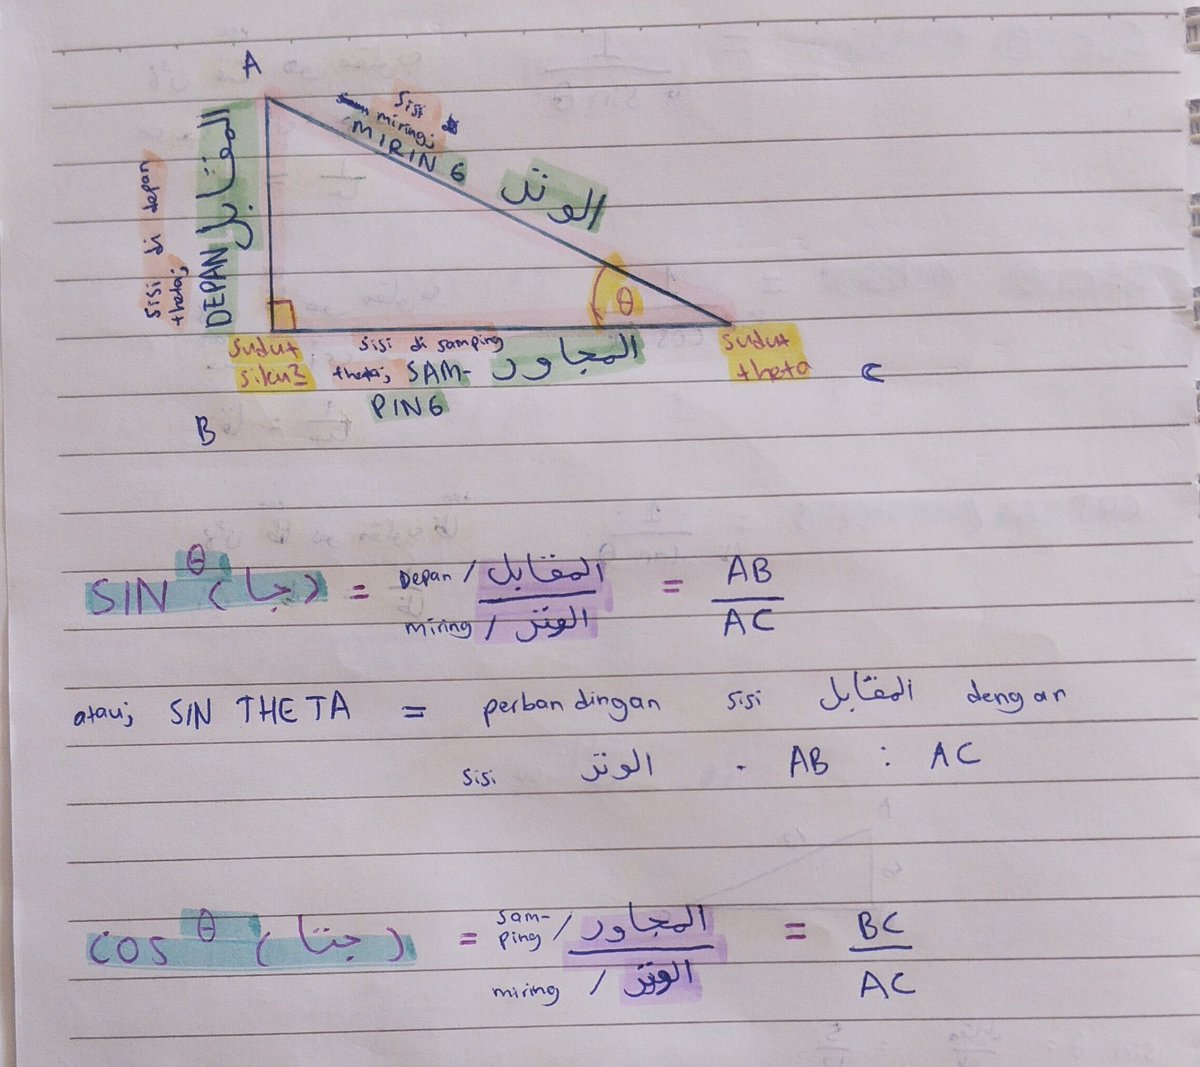 A
sisi
miring;
MIRING
الوتر
sisi di depan
theta;
DEPAN المقابل
θ
sudut
siku2
sisi di samping
theta; SAM-
PING
المجاور
sudut
theta
C
B
SIN θ (جا) = Depan / المقابل = AB
miring / الوتر AC
atau; SIN THETA = perbandingan sisi المقابل dengan
sisi الوتر - AB : AC
COS θ (جتا) = sam-
ping / المجاور = BC
miring / الوتر AC